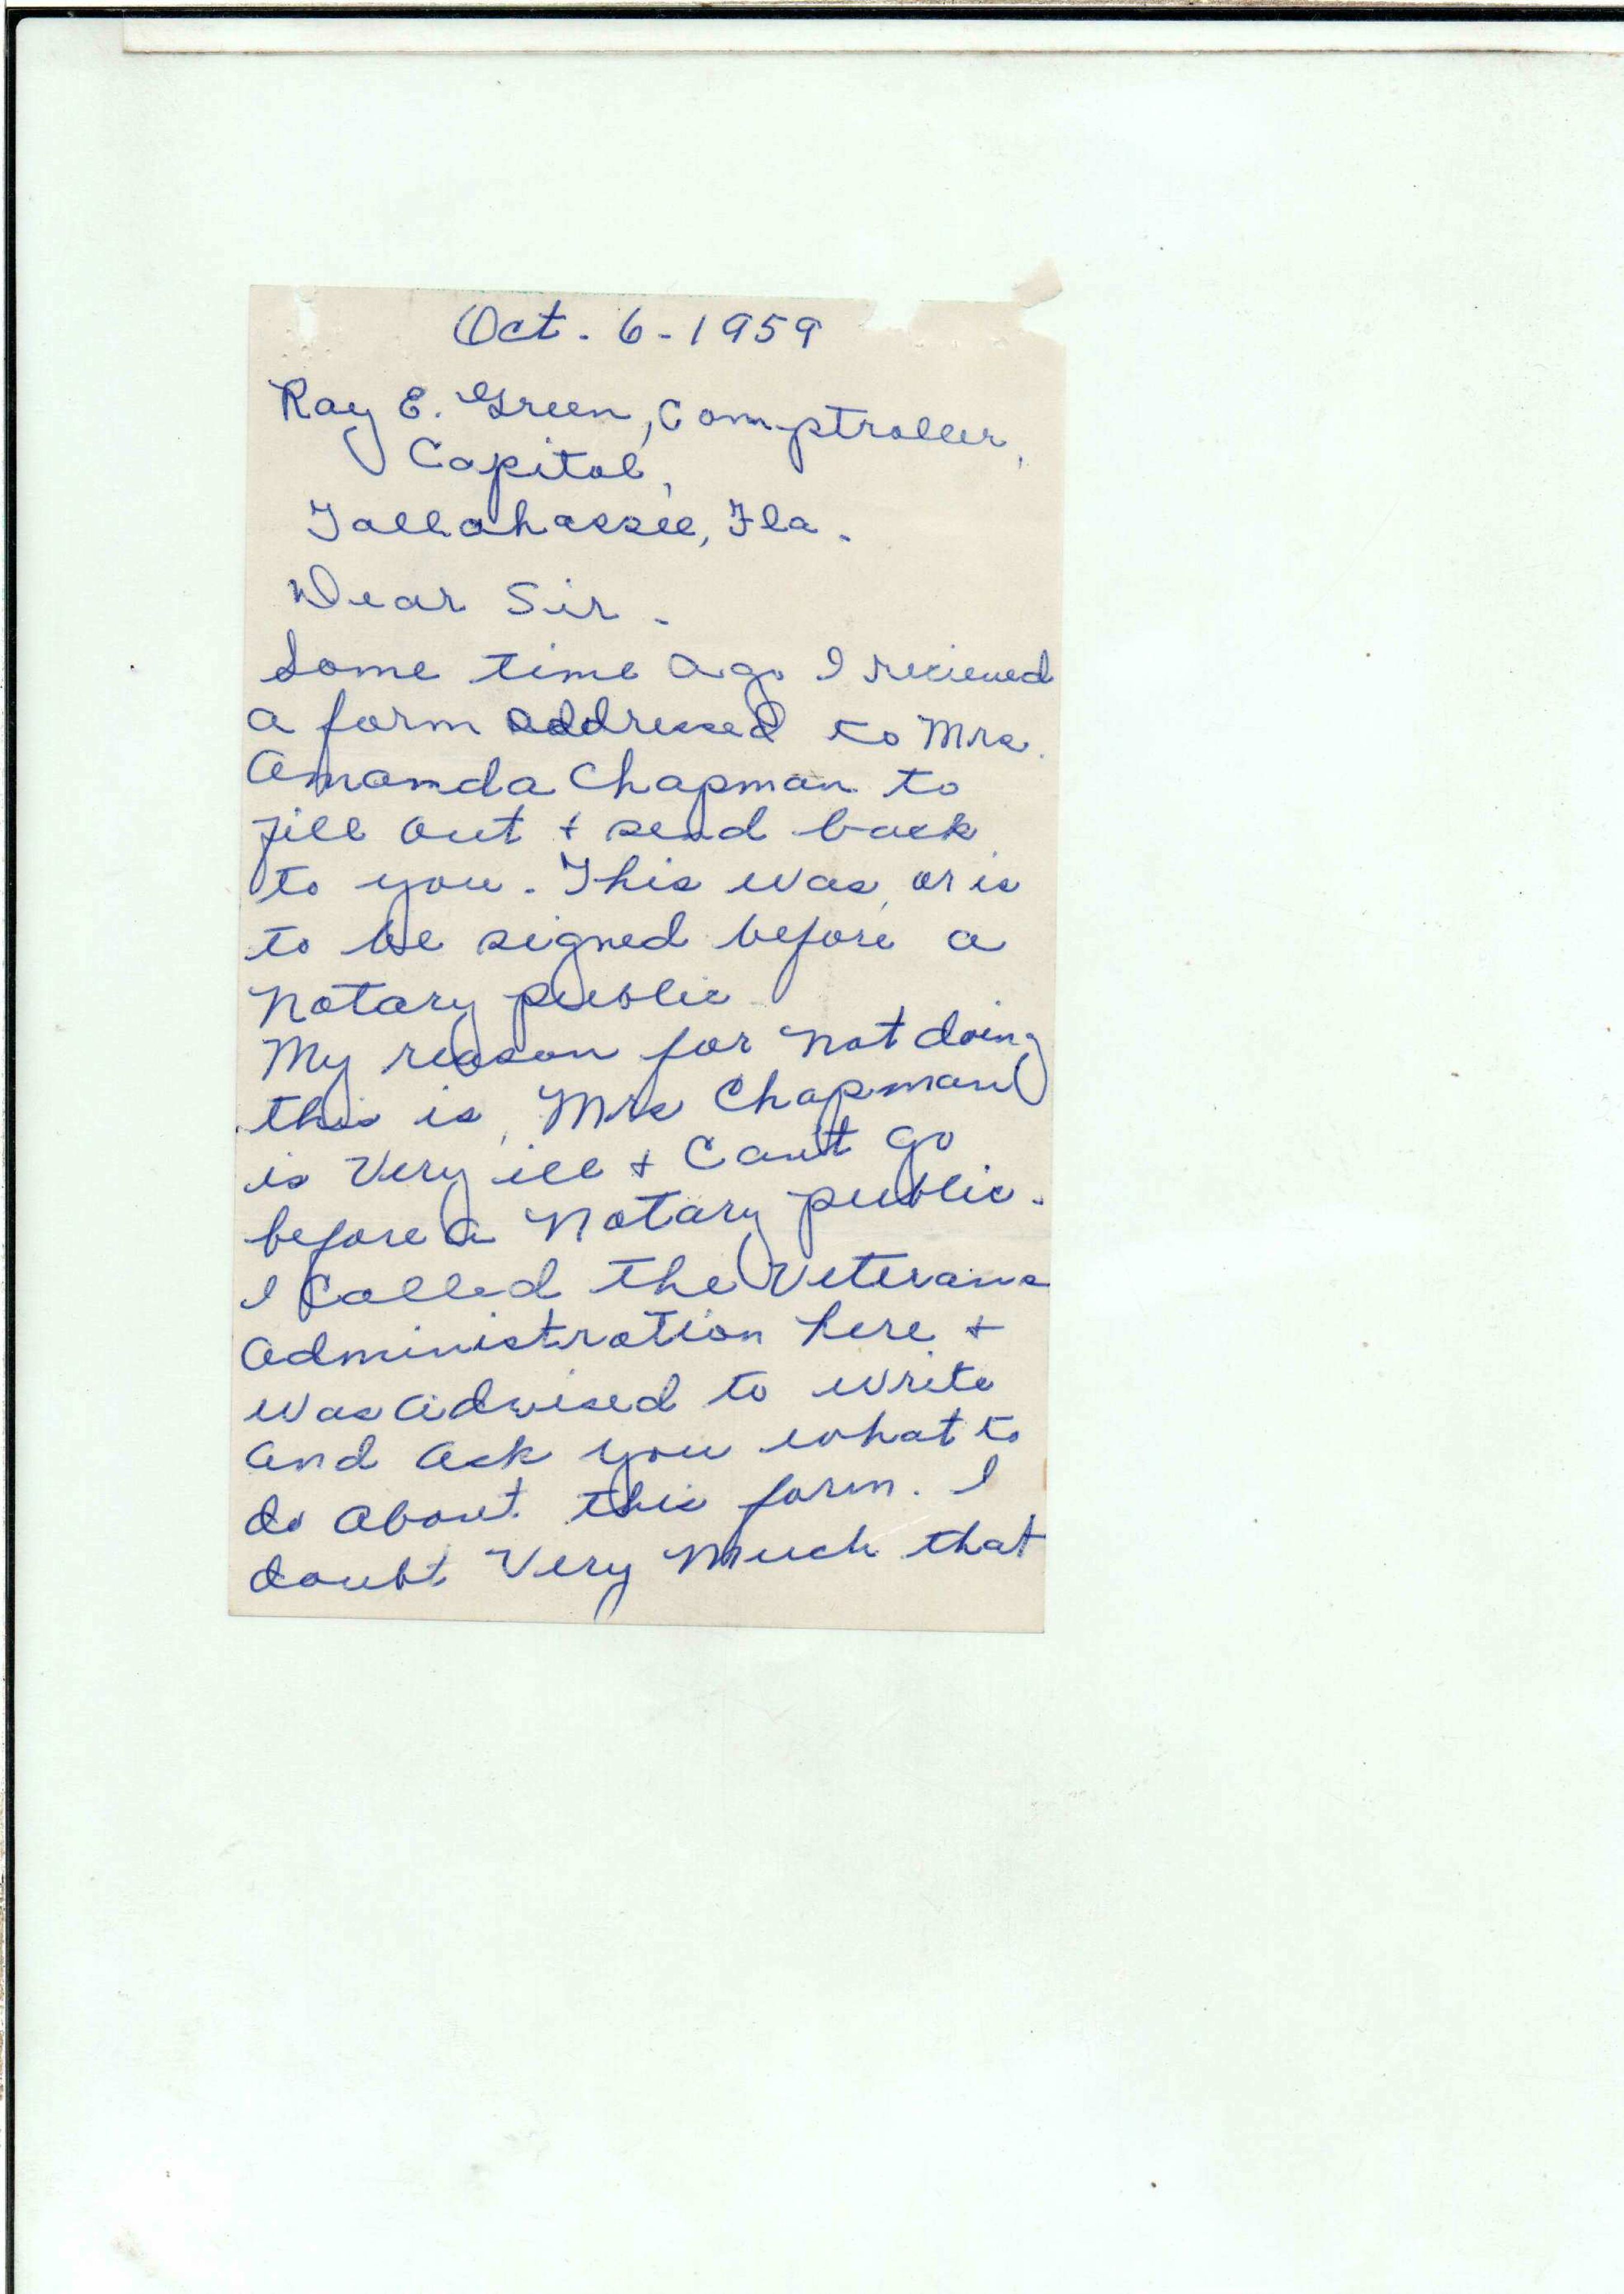 Oct. 6-1959
Ray E. Green, Comptroller,
Capitol,
Tallahassee, Fla.
Dear Sir.
Some time ago I recieved
a form addressed to Mrs.
Amanda Chapman to
fill out + send back
to you. This was, or is
to be signed before a
notary public
My reason for not doing
this is, Mrs Chapman
is very ill + can't go
before a notary public.
I called the Veterans
Administration here +
was advised to write
and ask you what to
do about this form. I
doubt very much that